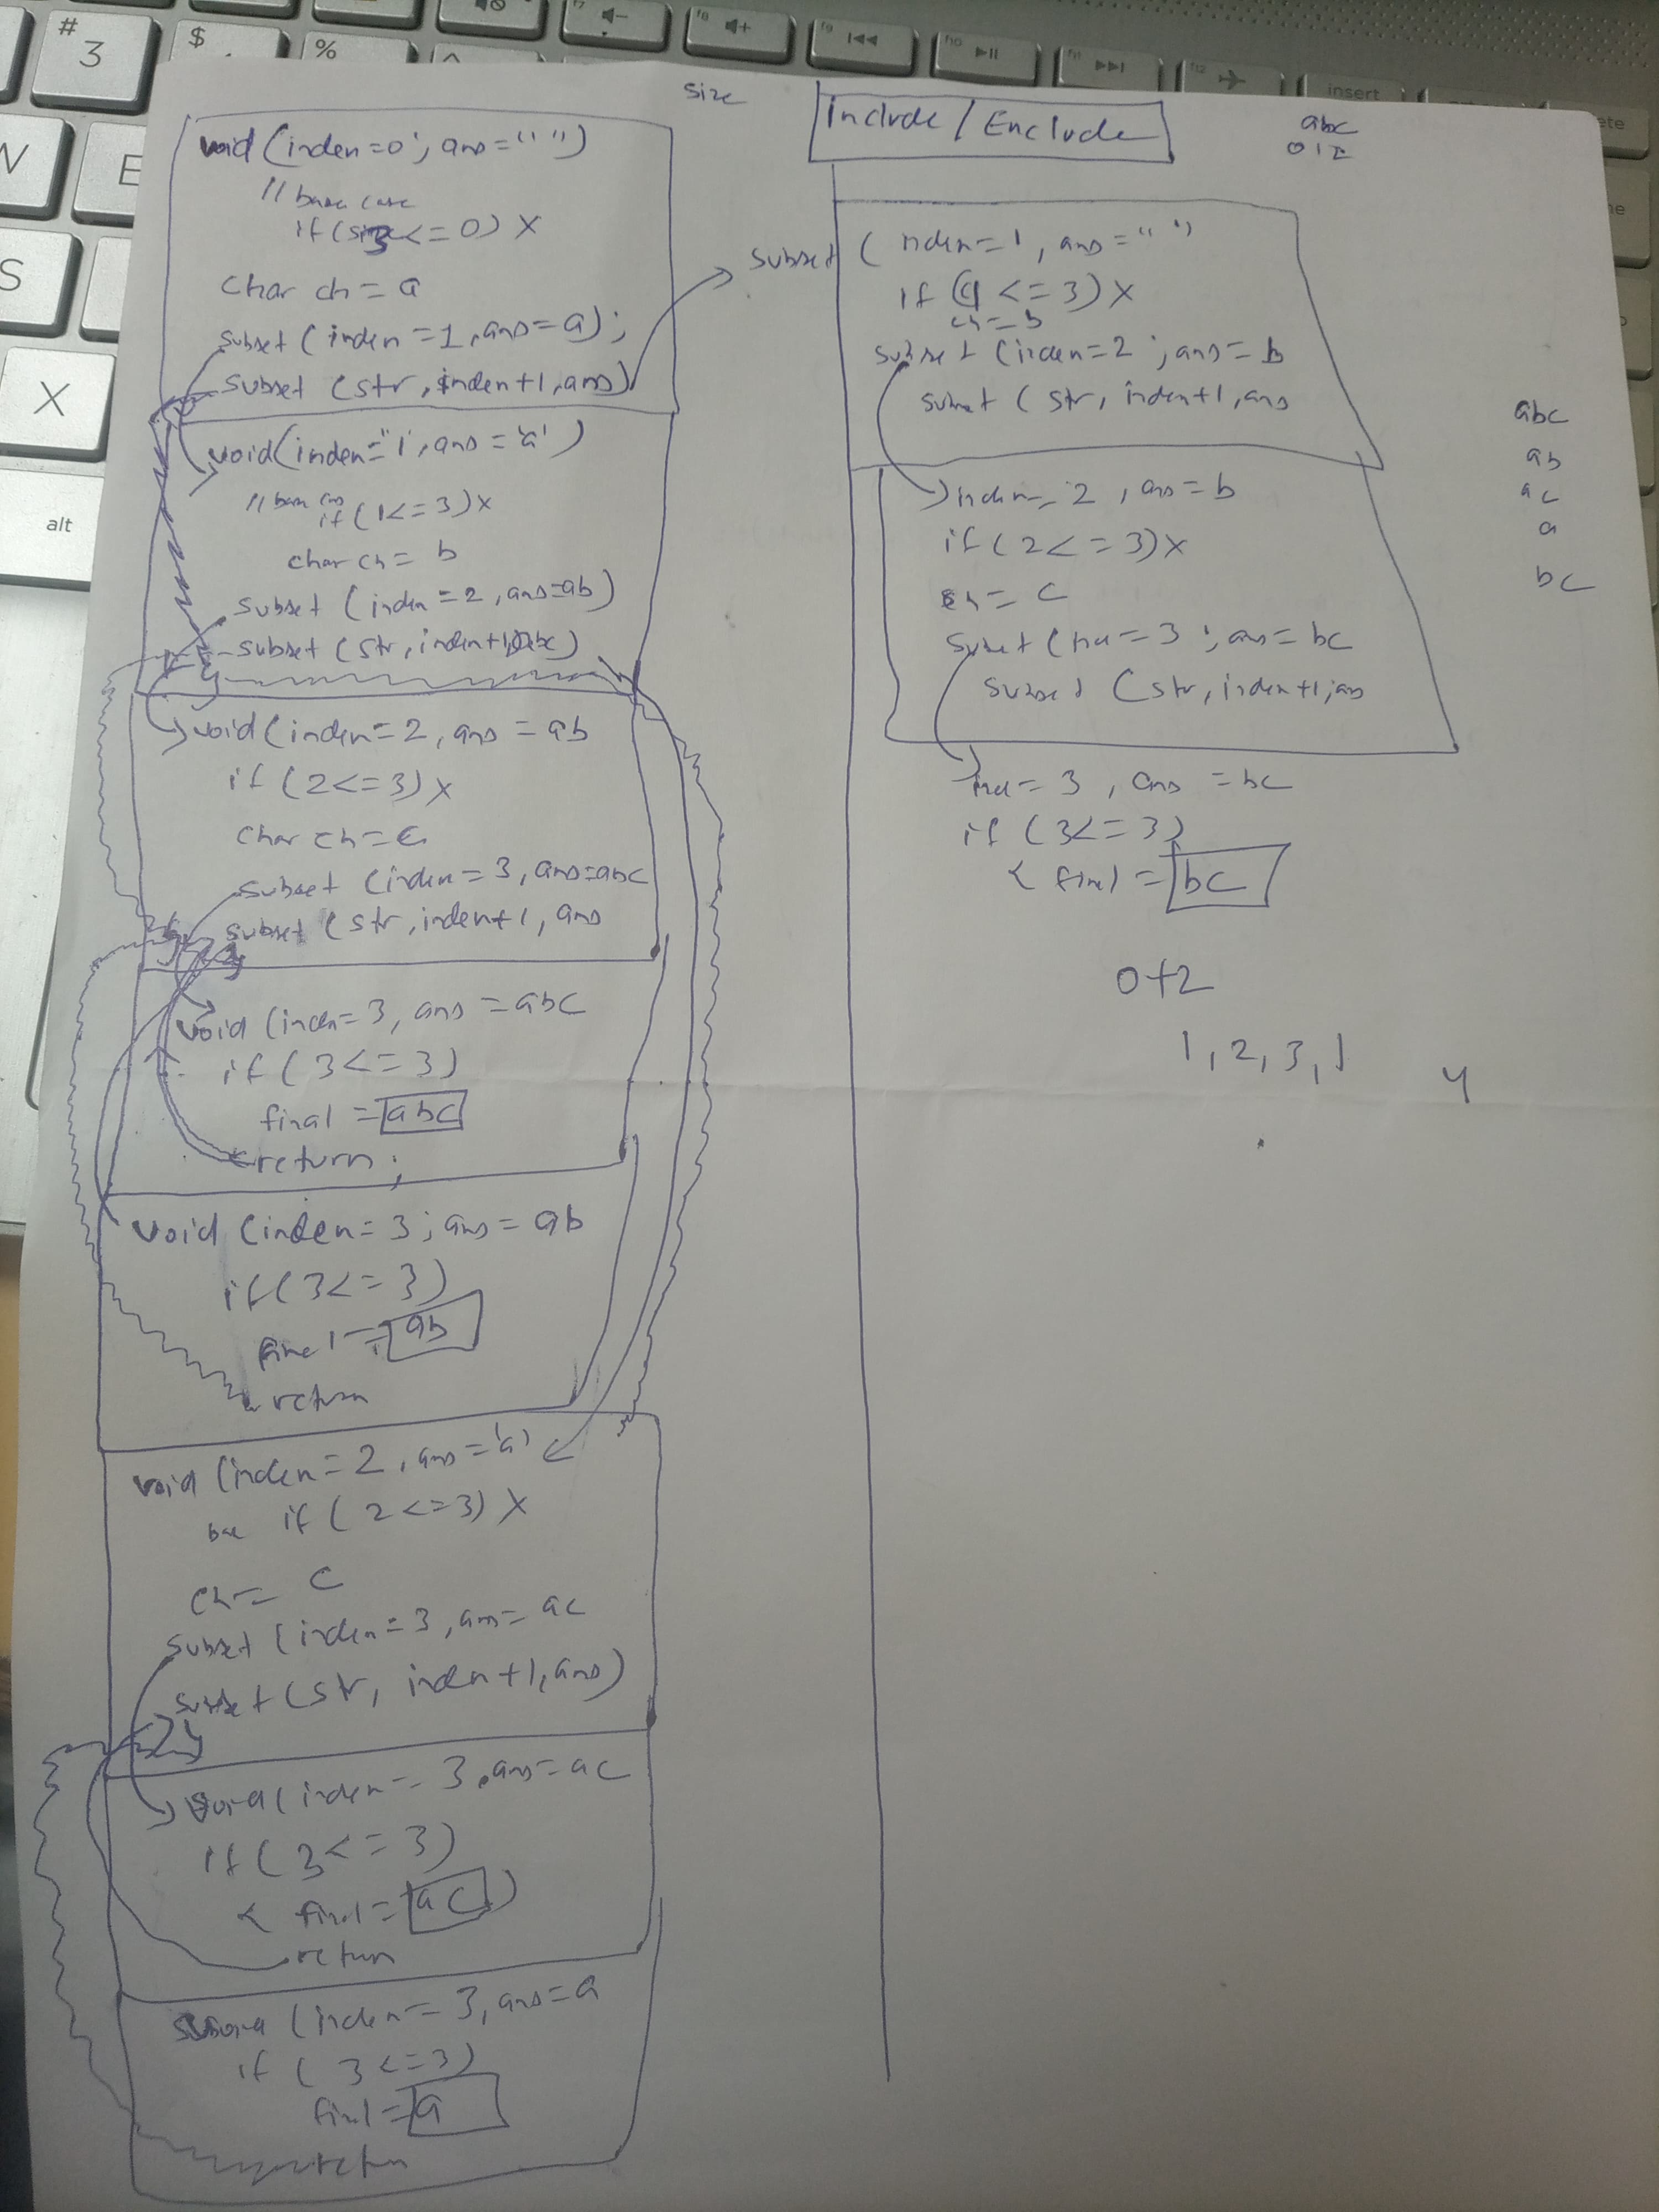 size
void (index=0; ans=" ")
// base case
if (3 <= 0) X
char ch = a
subset (index=1, ans=a);
subset (str, index+1, ans)
void (index="1", ans='a')
// base case
if (1<=3) X
char ch = b
subset (index=2, ans=ab)
subset (str, index+1,
void (index=2, ans=ab
if (2<=3) X
char ch = c
subset (index=3, ans=abc
subset (str, index+1, ans
void (index=3, ans=abc
if (3<=3)
final = abc
return;
void (index=3; ans=ab
if (3<=3)
final = ab
return
void (index=2, ans='a'
base if (2<=3) X
ch= c
subset (index=3, ans=ac
subset (str, index+1, ans)
void (index=3, ans=ac
if (3<=3)
{ final = ac }
return
(index=3, ans=a
if (3<=3)
final = a
return
Include / Exclude
abc
012
subset (index=1, ans=" ")
if (1<=3) X
ch=b
subset (index=2; ans=b
subset (str, index+1, ans
index=2, ans=b
if (2<=3) X
ch= c
subset (ind=3; ans=bc
subset (str, index+1, ans
ind=3, ans=bc
if (3<=3)
{ final = bc
0+2
1, 2, 3, 1
4
abc
ab
ac
a
bc